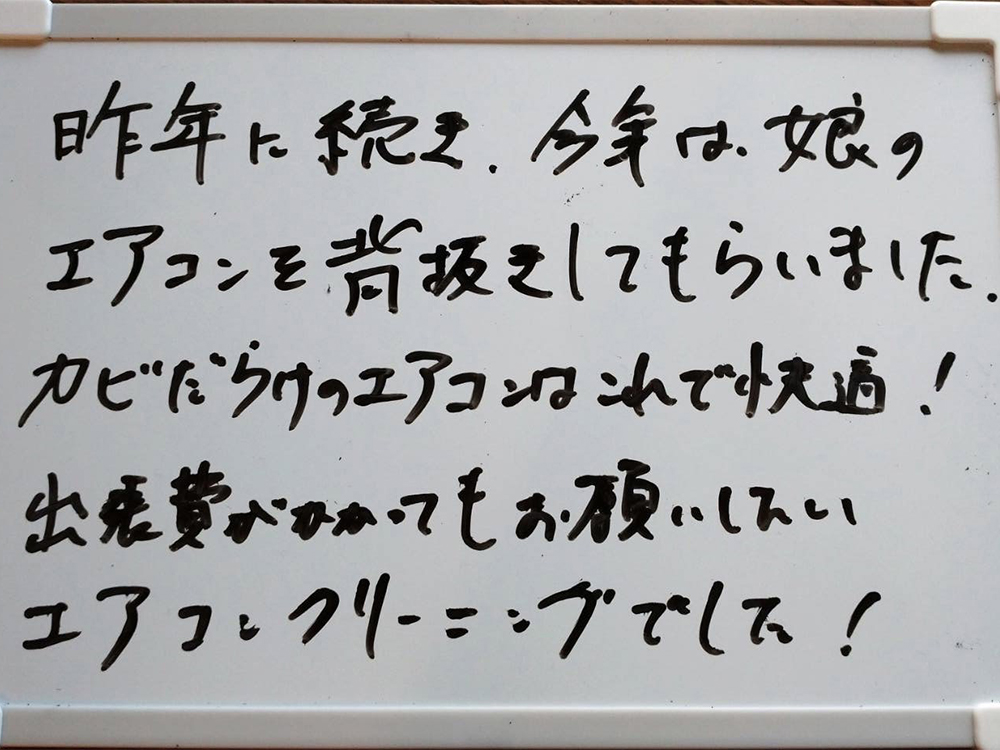 昨年に続き、今年は、娘の
エアコンを背抜きしてもらいました。
カビだらけのエアコンはこれで快適！
出張費がかかってもお願いしたい
エアコンクリーニングでした！